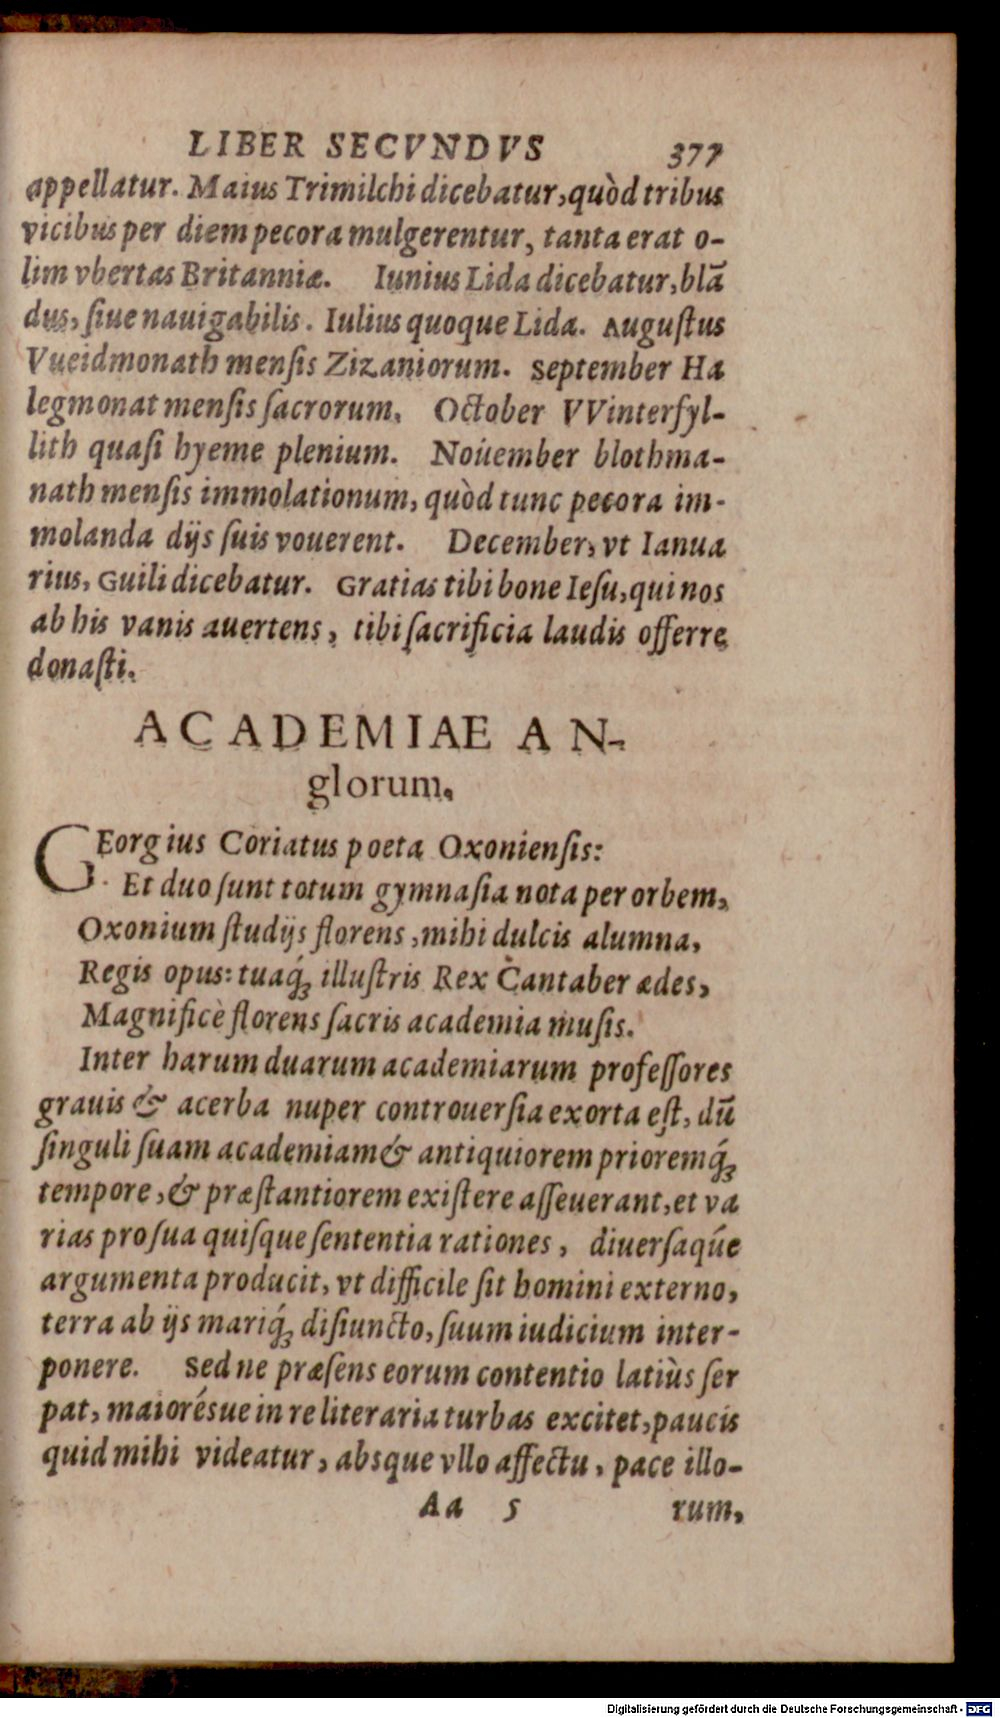 LIBER SECVNDVS 377
appellatur. Maius Trimilchi dicebatur, quòd tribus
vicibus per diem pecora mulgerentur, tanta erat o-
lim vbertas Britanniæ. Iunius Lida dicebatur, blã
dus, ſiue nauigabilis. Iulius quoque Lida. Auguſtus
Vueidmonath menſis Zizaniorum. September Ha
legmonat menſis ſacrorum. October VVinterfyl-
lith quaſi hyeme plenium. Nouember blothma-
nath menſis immolationum, quòd tunc pecora im-
molanda dijs ſuis vouerent. December, vt Ianua
rius, Guili dicebatur. Gratias tibi bone Ieſu, qui nos
ab his vanis auertens, tibi ſacrificia laudis offerre
donaſti.
ACADEMIAE AN-
glorum.
GEorgius Coriatus poeta Oxonienſis:
Et duo ſunt totum gymnaſia nota per orbem,
Oxonium ſtudijs florens, mihi dulcis alumna,
Regis opus: tuaq́ꝫ illuſtris Rex Cantaber ædes,
Magnificè florens ſacris academia muſis.
Inter harum duarum academiarum profeſſores
grauis & acerba nuper controuerſia exorta eſt, dũ
ſinguli ſuam academiam & antiquiorem prioremq́ꝫ
tempore, & præſtantiorem exiſtere aſſeuerant, et va
rias pro ſua quiſque ſententia rationes, diuerſaqúe
argumenta producit, vt difficile ſit homini externo,
terra ab ijs mariq́ꝫ diſiuncto, ſuum iudicium inter-
ponere. Sed ne præſens eorum contentio latiùs ſer
pat, maiorésue in re literaria turbas excitet, paucis
quid mihi videatur, absque vllo affectu, pace illo-
Aa 5 rum,
Digitalisierung gefördert durch die Deutsche Forschungsgemeinschaft - DFG